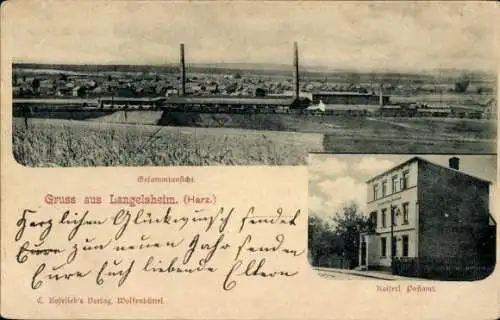 Gesammtansicht.
Gruss aus Langelsheim. (Harz.)
Herzlichen Glückwunsch sendet
Eure zum neuen Jahr senden
Eure Euch liebende Eltern
Kaiserl. Postamt.
Verlag, Wolfenbüttel.